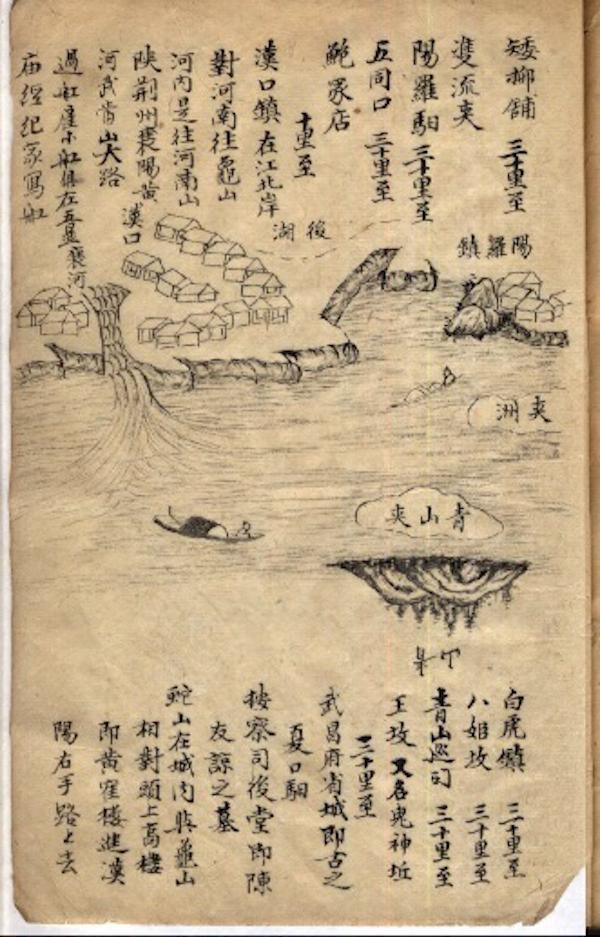 矮柳舖 三十里至
隻流夾
陽羅馹 三十里至
五同口 三十里至
鮑冢店
十里至
漢口鎮在江北岸
對河南往龜山
河內是往河南山
陝荆州襄陽黃
河武當山大路
過舡崖小舡俱在五显
庙經纪家寫舡
陽羅鎮
後湖
漢口
襄河
夾洲
青山夾
白虎鎮 三十里至
八姐坟 三十里至
青山巡司 三十里至
王坟 又名鬼神坵
三十里至
武昌府省城即古之
夏口馹
按察司後堂即陳
友諒之墓
蛇山在城内與龜山
相對頭上高樓
即黃寉樓進漢
陽右手路上去